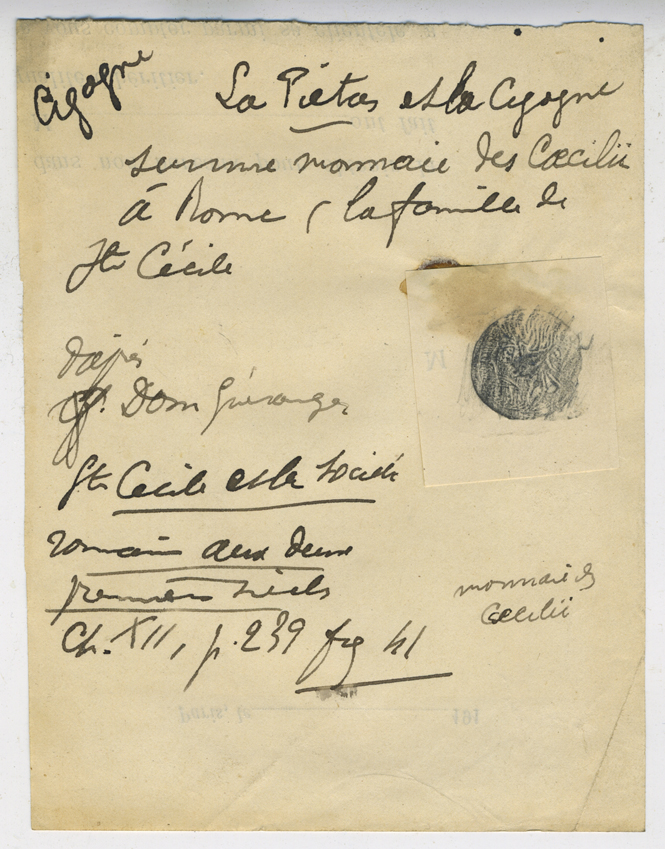 Cigogne
La Piétas et la Cigogne
sur une monnaie des Cæcilii
à Rome (la famille de
Ste Cécile
d'après
cf. Dom Guéranger
Ste Cécile et la Société
romaine aux deux
premiers siècles
Ch. XII, p. 239 fig 41
monnaie des
Cæcilii
Paris, le
191